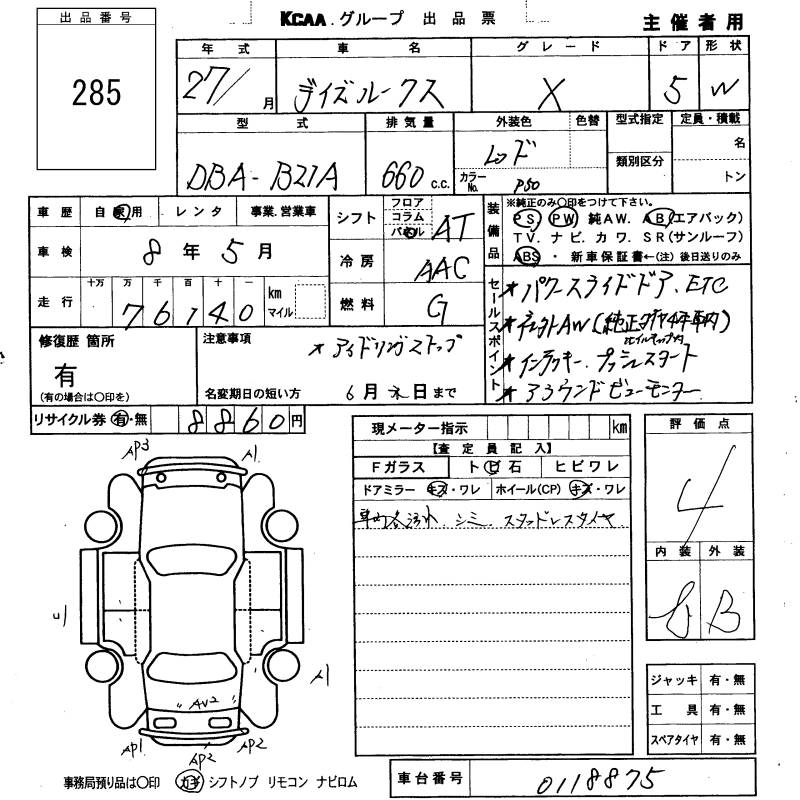 出品番号
285
KCAA.グループ 出品票
主催者用
年式 車名 グレード ドア 形状
27/ 月 デイズルークス X 5 W
型式 排気量 外装色 色替 型式指定 定員・積載
DBA-B21A 660 c.c. レッド 名
カラーNo. P50 類別区分 トン
車歴 自家用 レンタ 事業.営業車
車検 8年5月
走行 十万 万 千 百 十 一
76140 km マイル
シフト フロア コラム パネル AT
冷房 AAC
燃料 G
装備品 ※純正のみ○印をつけて下さい。
PS PW 純AW. AB(エアバック)
TV. ナビ. カワ. SR(サンルーフ)
ABS・新車保証書←(注) 後日送りのみ
セールスポイント
★パワースライドドア. ETC
★社外AW(純正タイヤ4本車内)
★インテリキー. プッシュスタート
★アラウンドビューモニター
修復歴 箇所
有
(有の場合は○印を)
注意事項
★アイドリングストップ
名変期日の短い方 6月末日まで
リサイクル券 有・無 8860円
現メーター指示 km
【査定員記入】
Fガラス トビ石 ヒビワレ
ドアミラー キズ・ワレ ホイール(CP) キズ・ワレ
車内各汚れ シミ スタッドレスタイヤ
評価点
4
内装 外装
B
AP3 A1
A1
AW2
AP1 AP2 AP2
ジャッキ 有・無
工具 有・無
スペアタイヤ 有・無
事務局預り品は○印 カギ シフトノブ リモコン ナビロム
車台番号 0118875